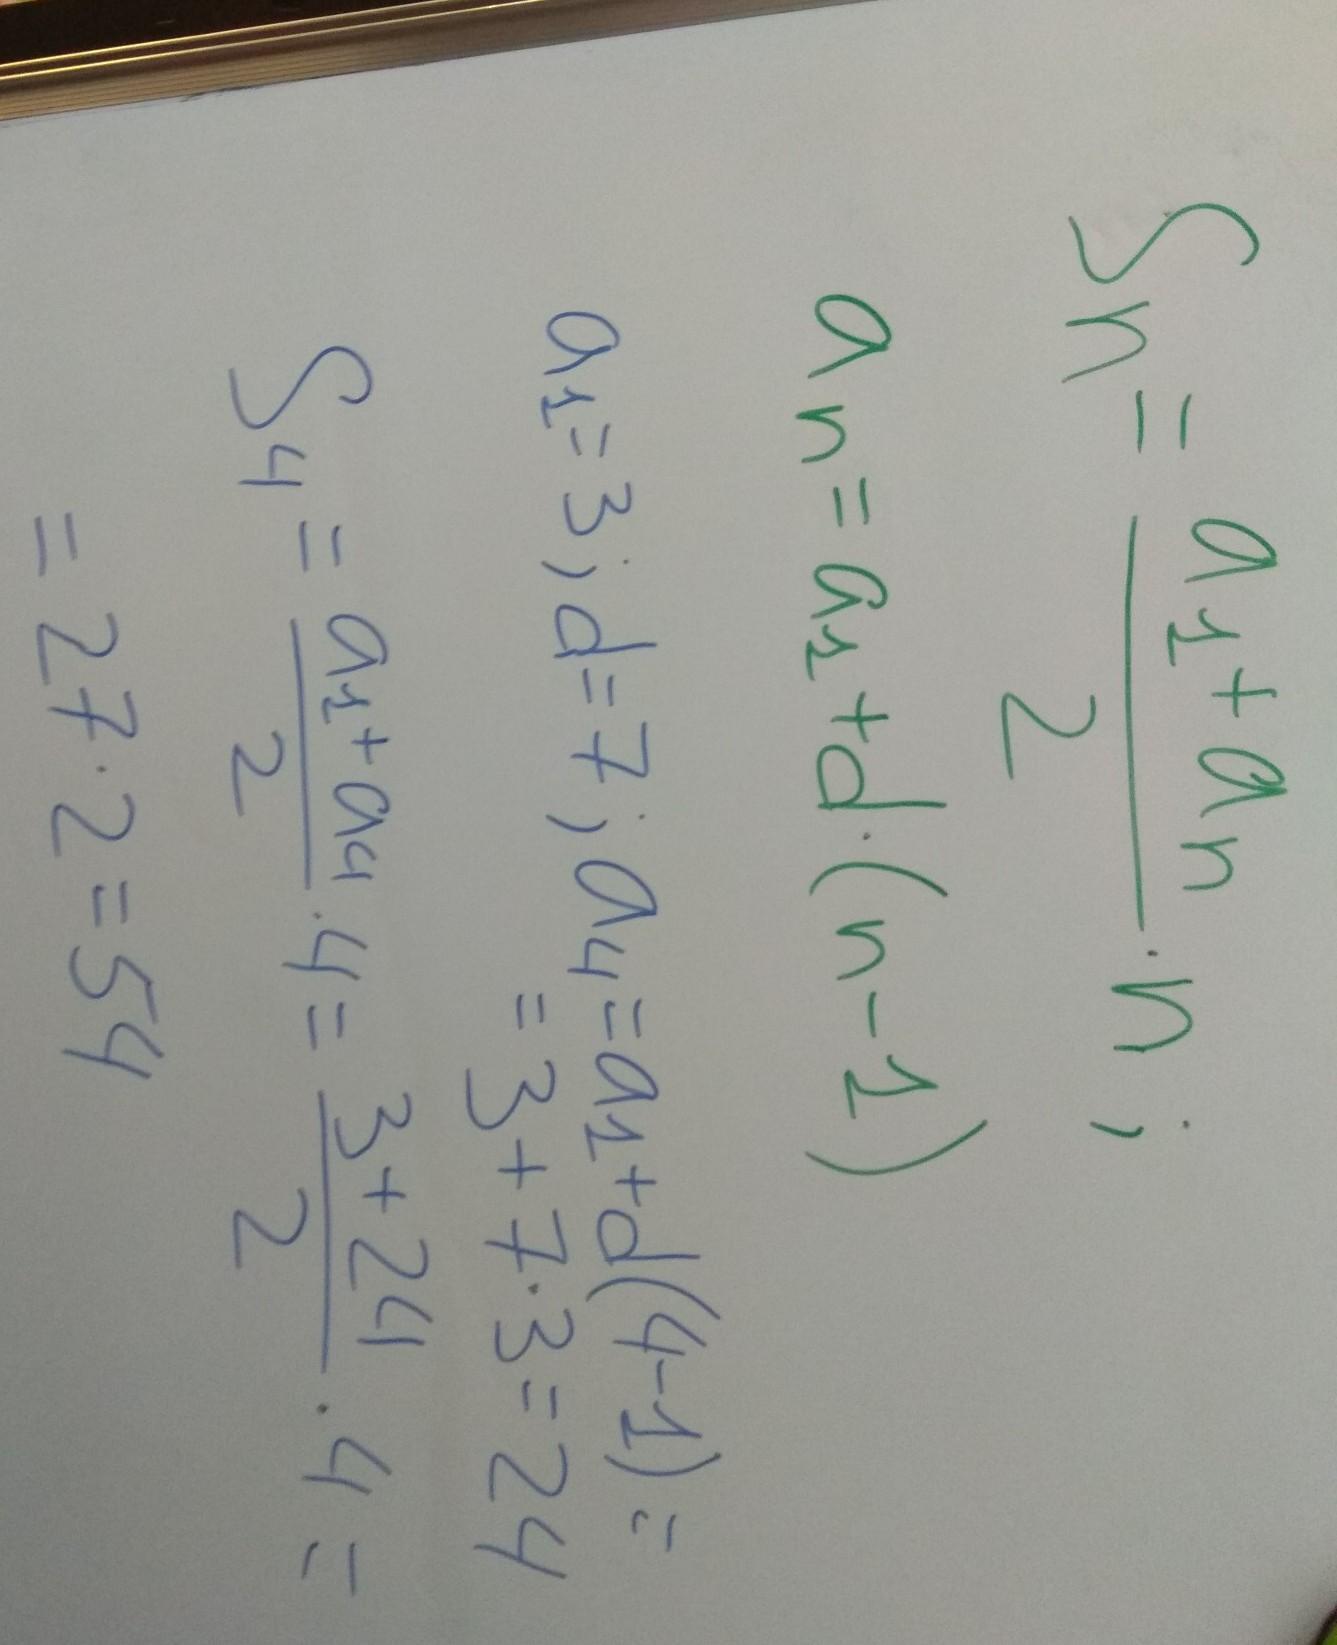 Sn = (a1 + an)/2 · n ;
an = a1 + d · (n - 1)
a1 = 3; d = 7; a4 = a1 + d(4-1) =
= 3 + 7 · 3 = 24
S4 = (a1 + a4)/2 · 4 = (3 + 24)/2 · 4 =
= 27 · 2 = 54